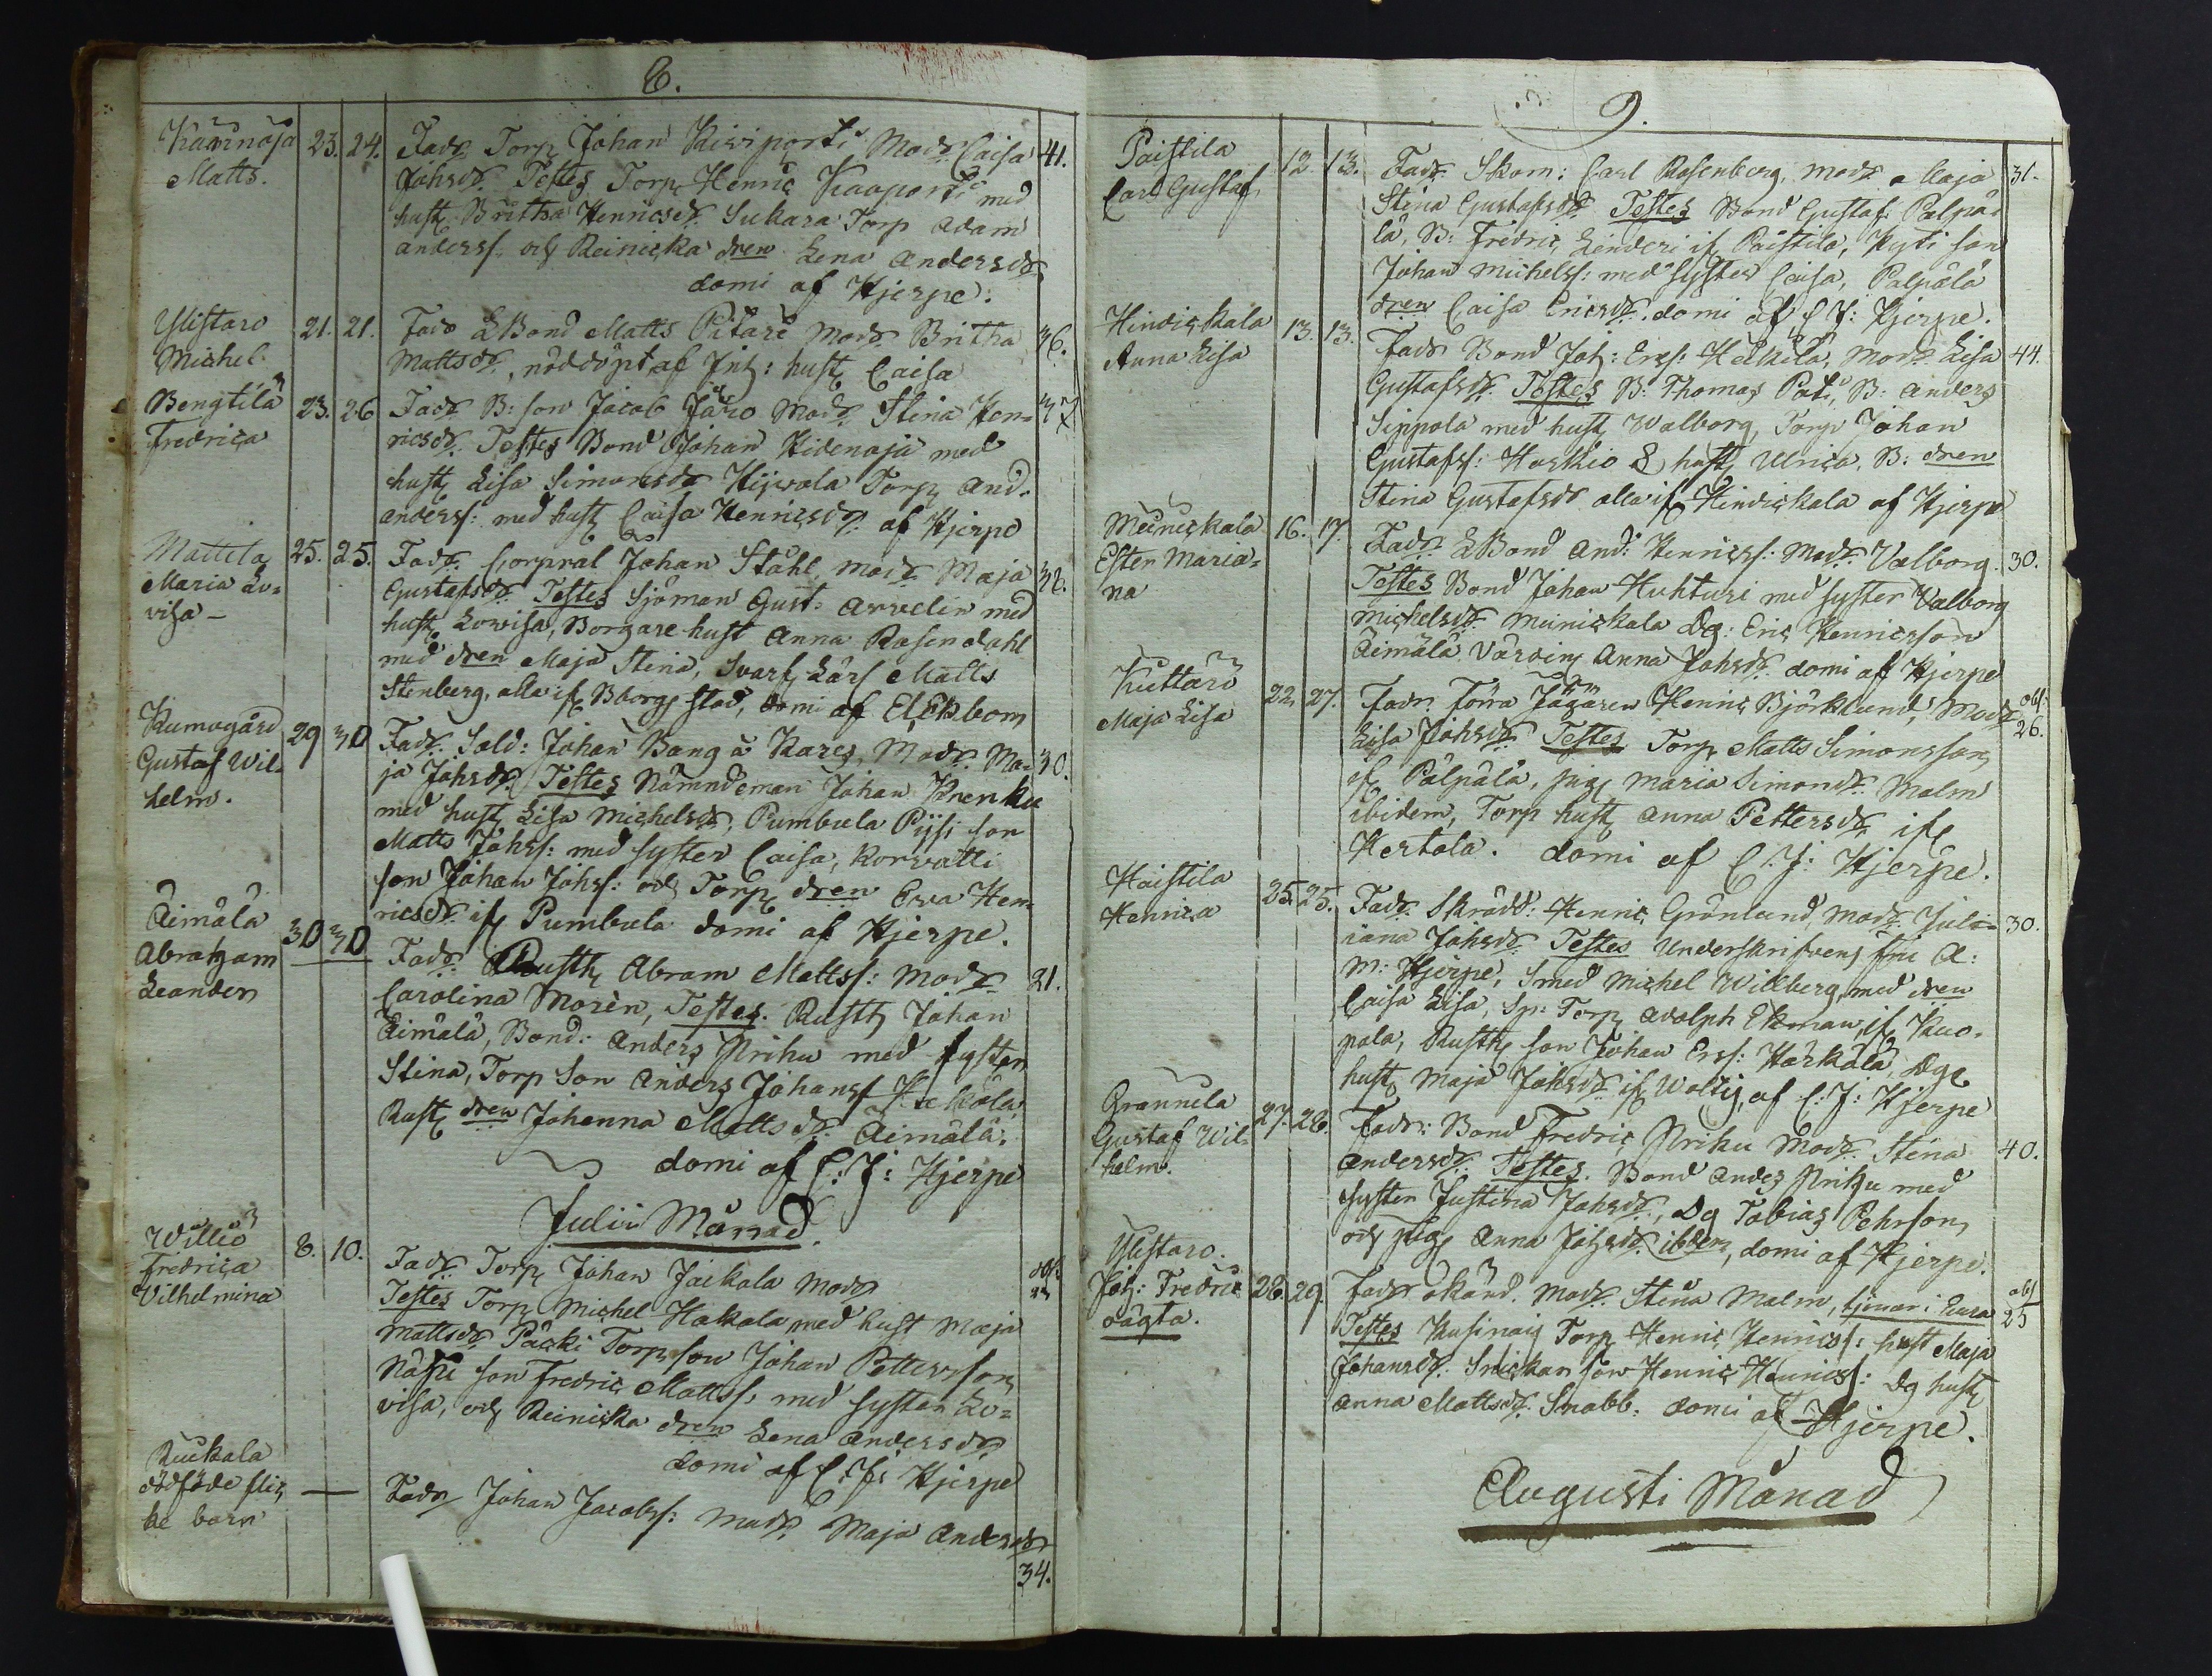 8.
Käärnäjä
Matts.
23. 24.
Fadr Torp Johan Kiviporti Modr Caisa 41.
Johsdr. Testes Torp Henric Kooporti med
hust. Britha Henricsdr. Sukara Torp Adam
Anderss. och Reinicka dren Lena Andersdr
domi af Hjerpe.
Ylistaro
Michel
21. 21.
Fadr LBond Matts Pitare Modr Britha 36.
Mattsdr., nöddöpt af Inh: hust Caisa
Bengtilä
Fredrica
23. 26
Fadr B: son Jacob Järiö Modr Stina Hen= 37
ricsdr. Testes Bond Johan Hidenoja med
hust Lisa Simonsdr Hijvola Torp And.
Anderss: med hust Caisa Henricsdr. af Hjerpe
Mattila
Maria Lo=
visa -
25. 25.
Fadr. Corpral Johan Ståhl, Modr Maja 38.
Gustafsdr. Testes Sjöman Gust: Arvelin med
hust Lovisa, Borgare hust Anna Rosendahl
med dren Maja Stina, Svarf Lärl Matts
Stenberg, alla if Bborg stad, domi af El. Ekbom
Kumogård
Gustaf Wil=
helm.
29 30
Fadr. Sold: Johan Bang å Kares, Modr. Ma= 30.
ja Johsdr. Testes Nämndeman Johan Krenku
med hust Lisa Michelsdr, Pumbula Pijsi son
Matts Johss: med syster Caisa, Korvatti
son Johan Johss: och Torp dren Eva Hen=
ricsdr. if Pumbula domi af Hjerpe.
Äimälä
Abraham
Leander
30 30
Fadr. Rusth Abram Mattss: Modr 21.
Carolina Morèn, Testes. Rusth Johan
Äimälä, Bond: Anders Prihu med syster
Stina, Torp Son Anders Johanss
Rust dren Johanna Mattsdr. Äimälä.
domi af C: J: Hjerpe
Julii Månad.
Williö
Fredrica
Vilhelmina
8. 10.
Fadr Torp Johan Jaickala Modr
Testes Torp Michel Hakala med hust Maja
Mattsdr. Päcki Torp son Johan Pettersson,
Näppi son Fredric Mattss. med syster Lo=
visa, och Reinicka dren Lena Andersdr
domi af C: J: Hjerpe
Kuckala
dödföde flic
ke barn
—
Fadr Johan Jacobss: Modr. Maja Andersdr
34.
9.
Paistila
Carl Gustaf
12 13.
Fadr. Skom: Carl Rosenberg, Modr. Maja 31.
Stina Gustafsdr Testes Bond Gustaf Palpä=
lä, B: Fredric Linderi if Paistila, Kyti son
Johan Michelss: med syster Caisa, Palpälä
dren Caisa Ericsdr. domi af C J: Hjerpe.
Hindickala
Anna Lisa
13. 13.
Fadr Bond Joh: Ericss: Heikilä, Modr Lisa 44.
Gustafsdr. Testes B: Thomas Pati, B: Anders
Sippola med hust Walborg, Torp Johan
Gustafss: Harkio & hust Ulrica, B: dren
Stina Gustafsdr alla if Hindickala af Hjerpe
Meinickala
Ester Maria=
na
16. 17.
Fadr LBond And: Henricss: Modr Valborg. 30.
Testes Bond Johan Huhtuse med syster Valborg
Michelsdr Meinickala Dg: Eric Henricsson
Äimälä Värving Anna Johsdr domi af Hjerpe
Kuttäri
Maja Lisa
22. 27.
Fadr. förra Jägaren Henric Björklund, Modr obs:
Lisa Johsdr Testes Torp Matts Simonsson, 26.
if Pälpälä, pig Maria Simonsdr. Malm
ibidem, Torp hust Anna Pettersdr if
Hertola. domi af C. J: Hjerpe.
Haistila
Henrica
25. 25.
Fadr Skrädd: Henric Grönlund, Modr Juli= 30.
iana Johsdr. Testes Underskrifvens fru A:
M: Hjerpe, Smed Michel Willberg, med dren
Caisa Lisa, Sp: Torp Adolph Ekman, if Kuo=
pala, Rusth son Johan Erss: Härkälä, Dg
hust Maja Johsdr if Woltig, af C: J: Hjerpe
Grannela
Gustaf Wil=
helm.
27. 28.
Fadr: Bond Fredric Prihu Modr. Stina 40.
Andersdr: Testes. Bond Anders Prihu med
syster Justina Johsdr, Dg Tobias Pehrson,
och pig Anna Johsdr ibdem, domi af Hjerpe.
Ylistaro.
Joh: Fredric
oägta.
28. 29.
Fadr okänd. Modr. Stina Malm, tjenar i Eura obs
Testes Kusinais Torp Henric Henricss: hust Maja 25
Johansdr. Snickar son Henric Henricss: Dg hust
Anna Mattsdr. Snabb. domi af Hjerpe.
Augusti Månad